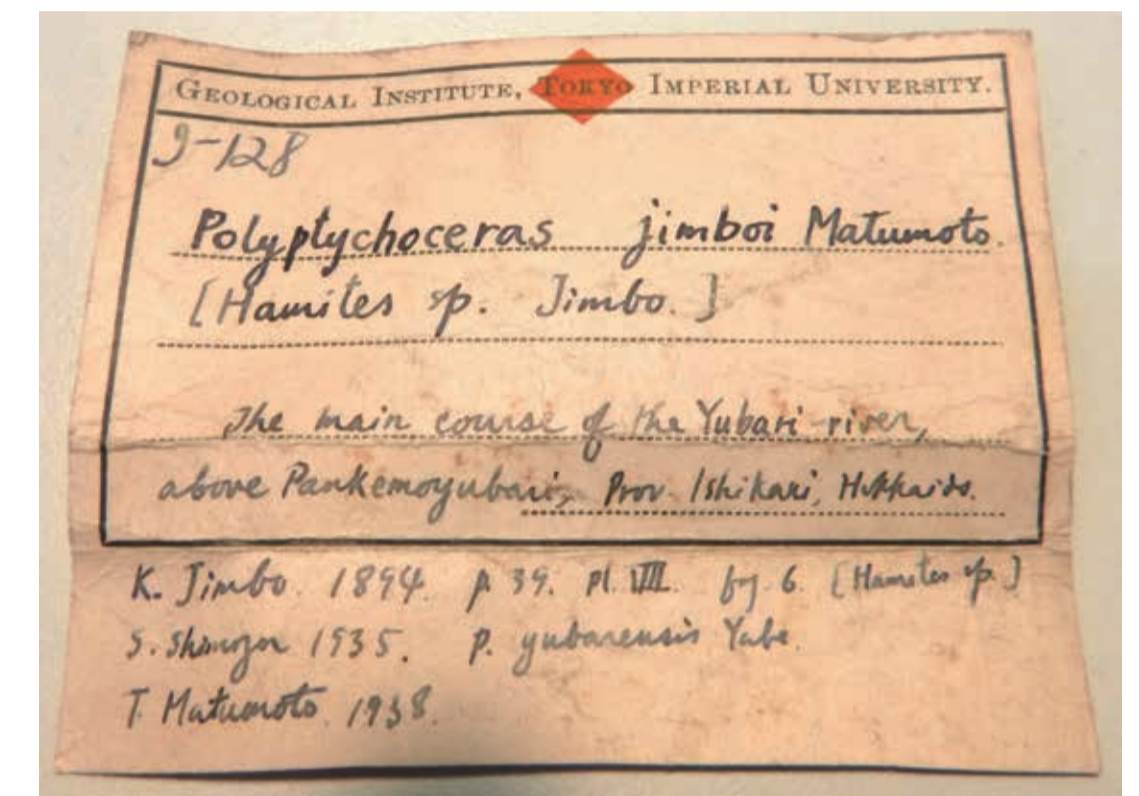 GEOLOGICAL INSTITUTE, TOKYO IMPERIAL UNIVERSITY.
I-128
Polyptychoceras jimboi Matumoto.
[Hamites sp. Jimbo.]
The main course of the Yubari-river,
above Pankemoyubari, Prov. Ishikari, Hokkaido.
K. Jimbo. 1894. p. 39. pl. VIII. fig. 6. [Hamites sp.]
S. Shimizu 1935. P. yubarensis Yabe.
T. Matumoto. 1938.